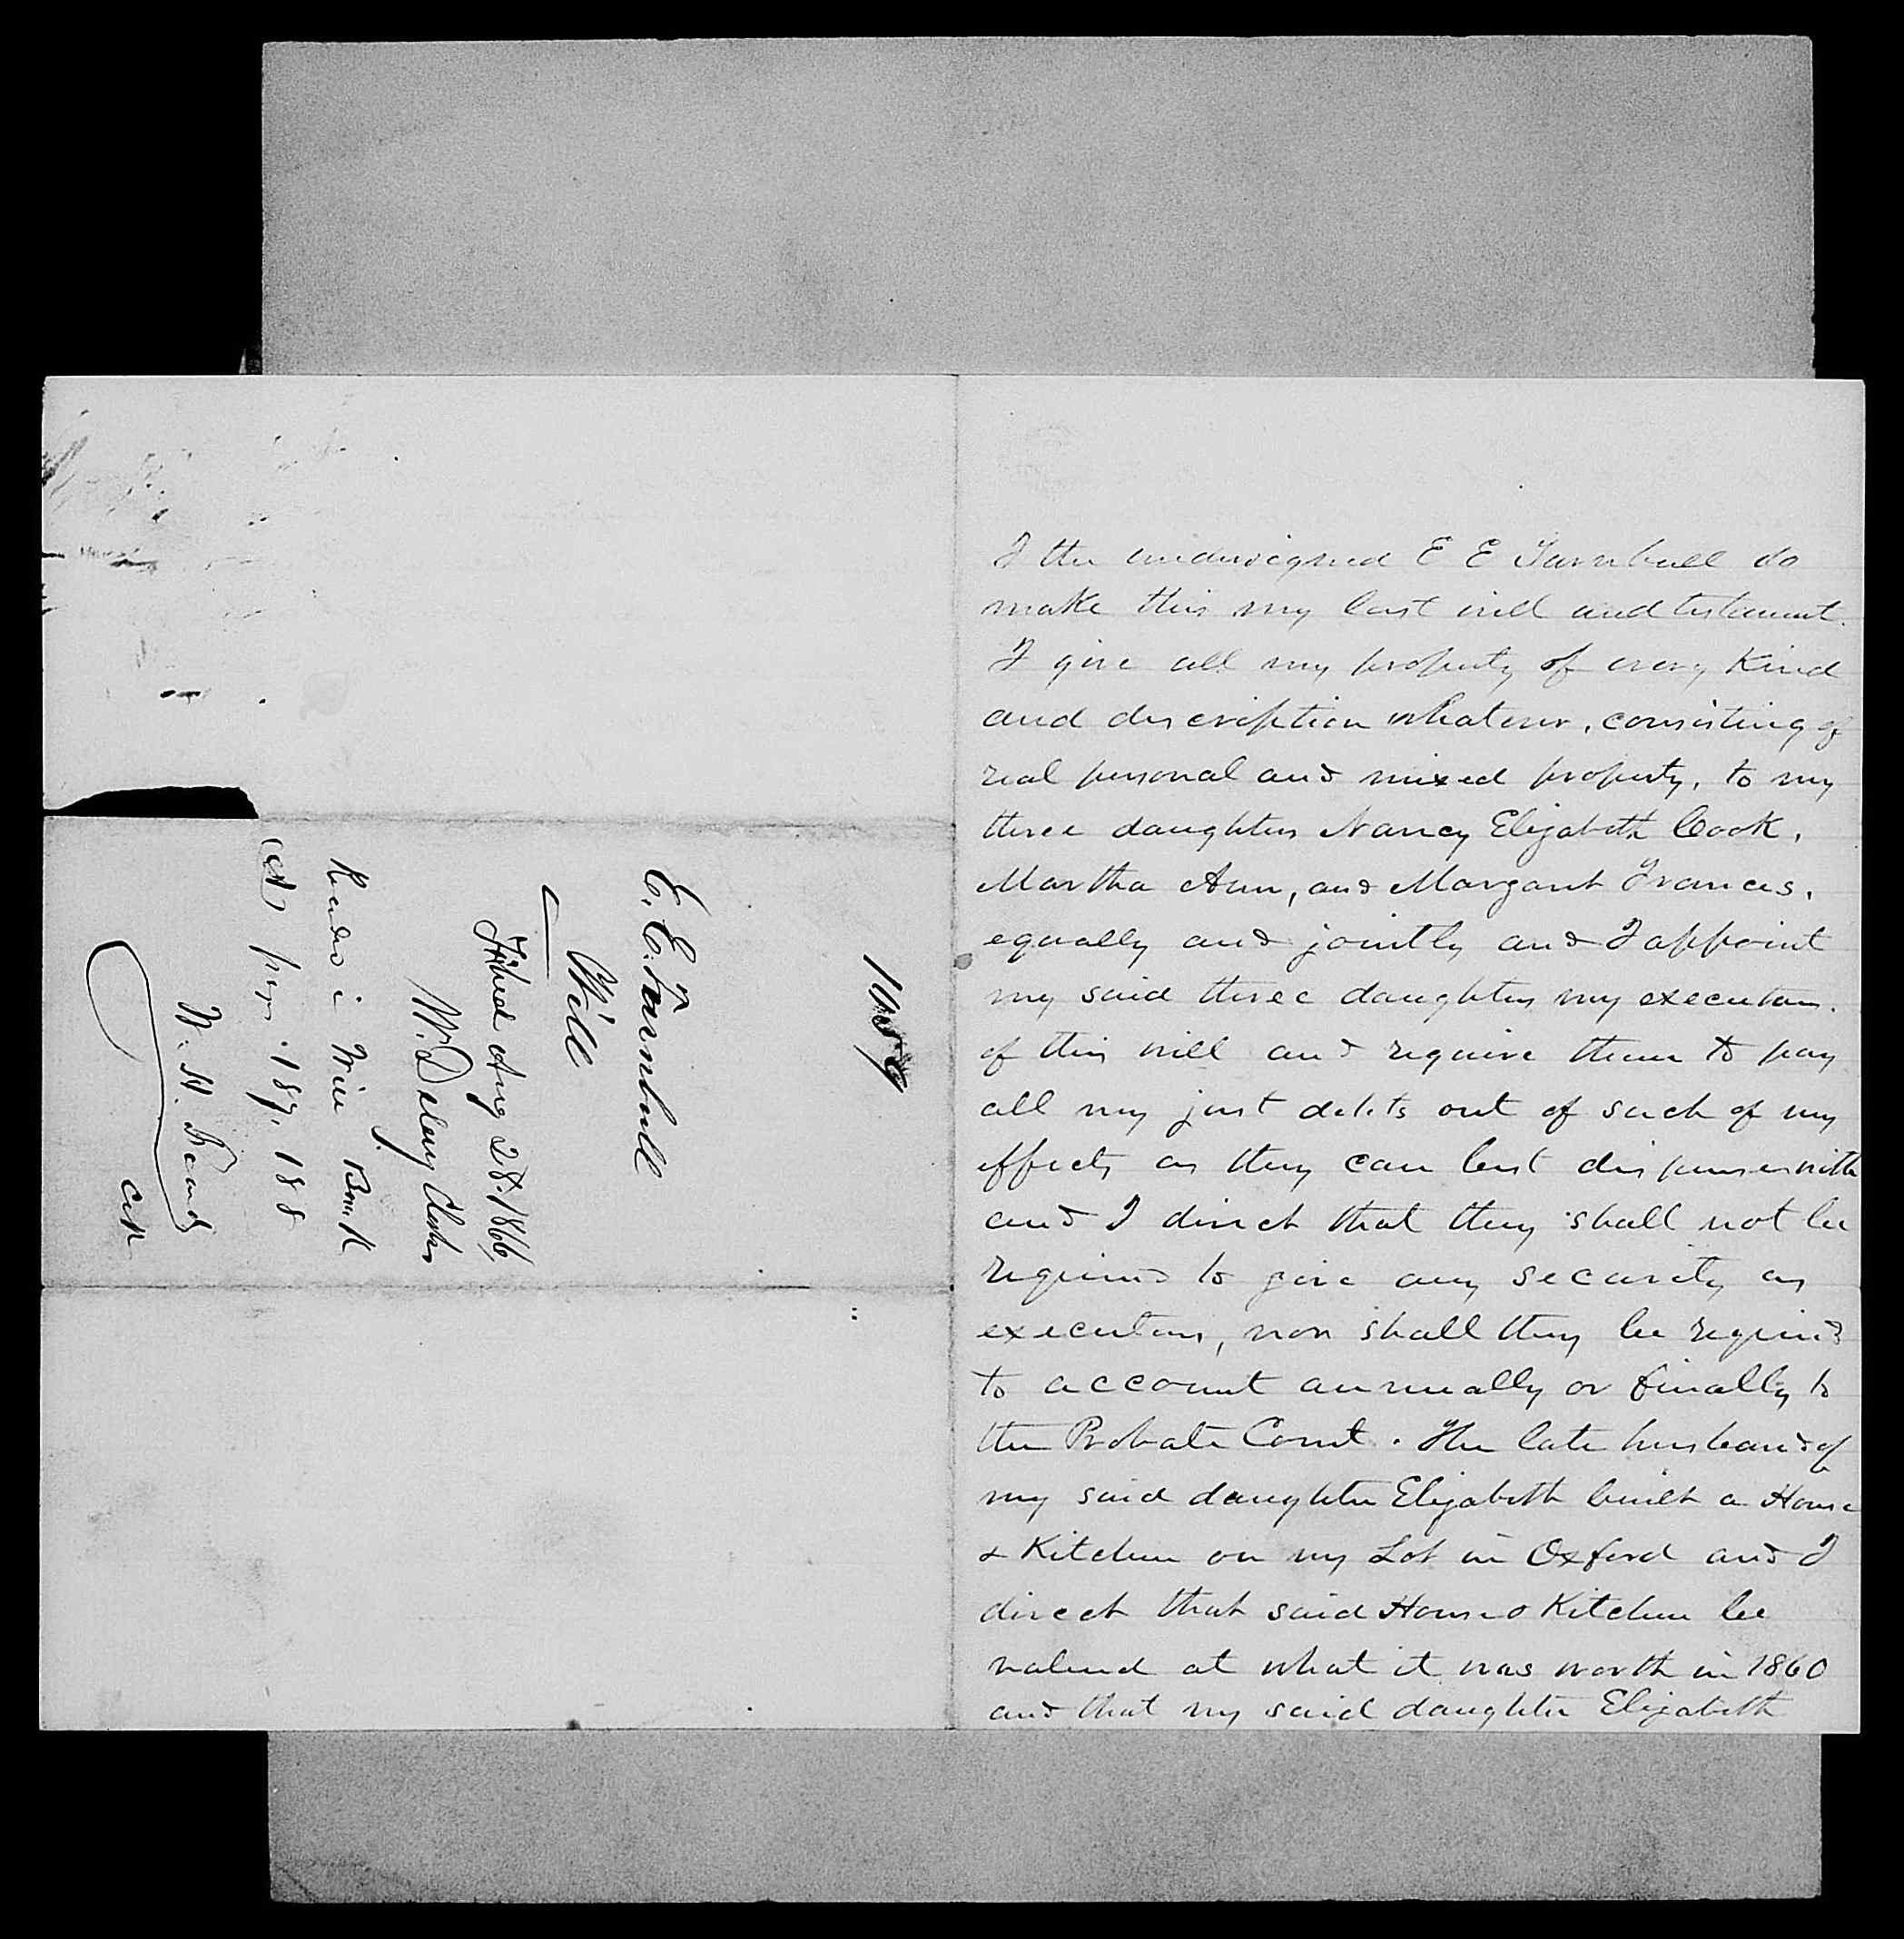 1459
E. E. Turnbull
Will
Filed Aug 28. 1866
W. Delay Clerk
Record in Will Book
pages 187, 188
W. H.
Clk
I the undersigned E E Turnbull do
make this my last will and testament.
I give all my property of every Kind
and description whatever, consisting of
real personal and mixed property, to my
three daughters Nancy Elizabeth Cook,
Martha Ann, and Margaret Frances,
equally and jointly and I appoint
my said three daughters my executors.
of this will and require them to pay
all my just debts out of such of my
effects as they can best dispense with
and I direct that they shall not be
required to give any security as
executors, nor shall they be required
to account annually or finally to
the Probate Court. The late husband of
my said daughter Elizabeth built a House
& Kitchen on my Lot in Oxford and I
direct that said House & Kitchen be
valued at what it was worth in 1860
and that my said daughter Elizabeth